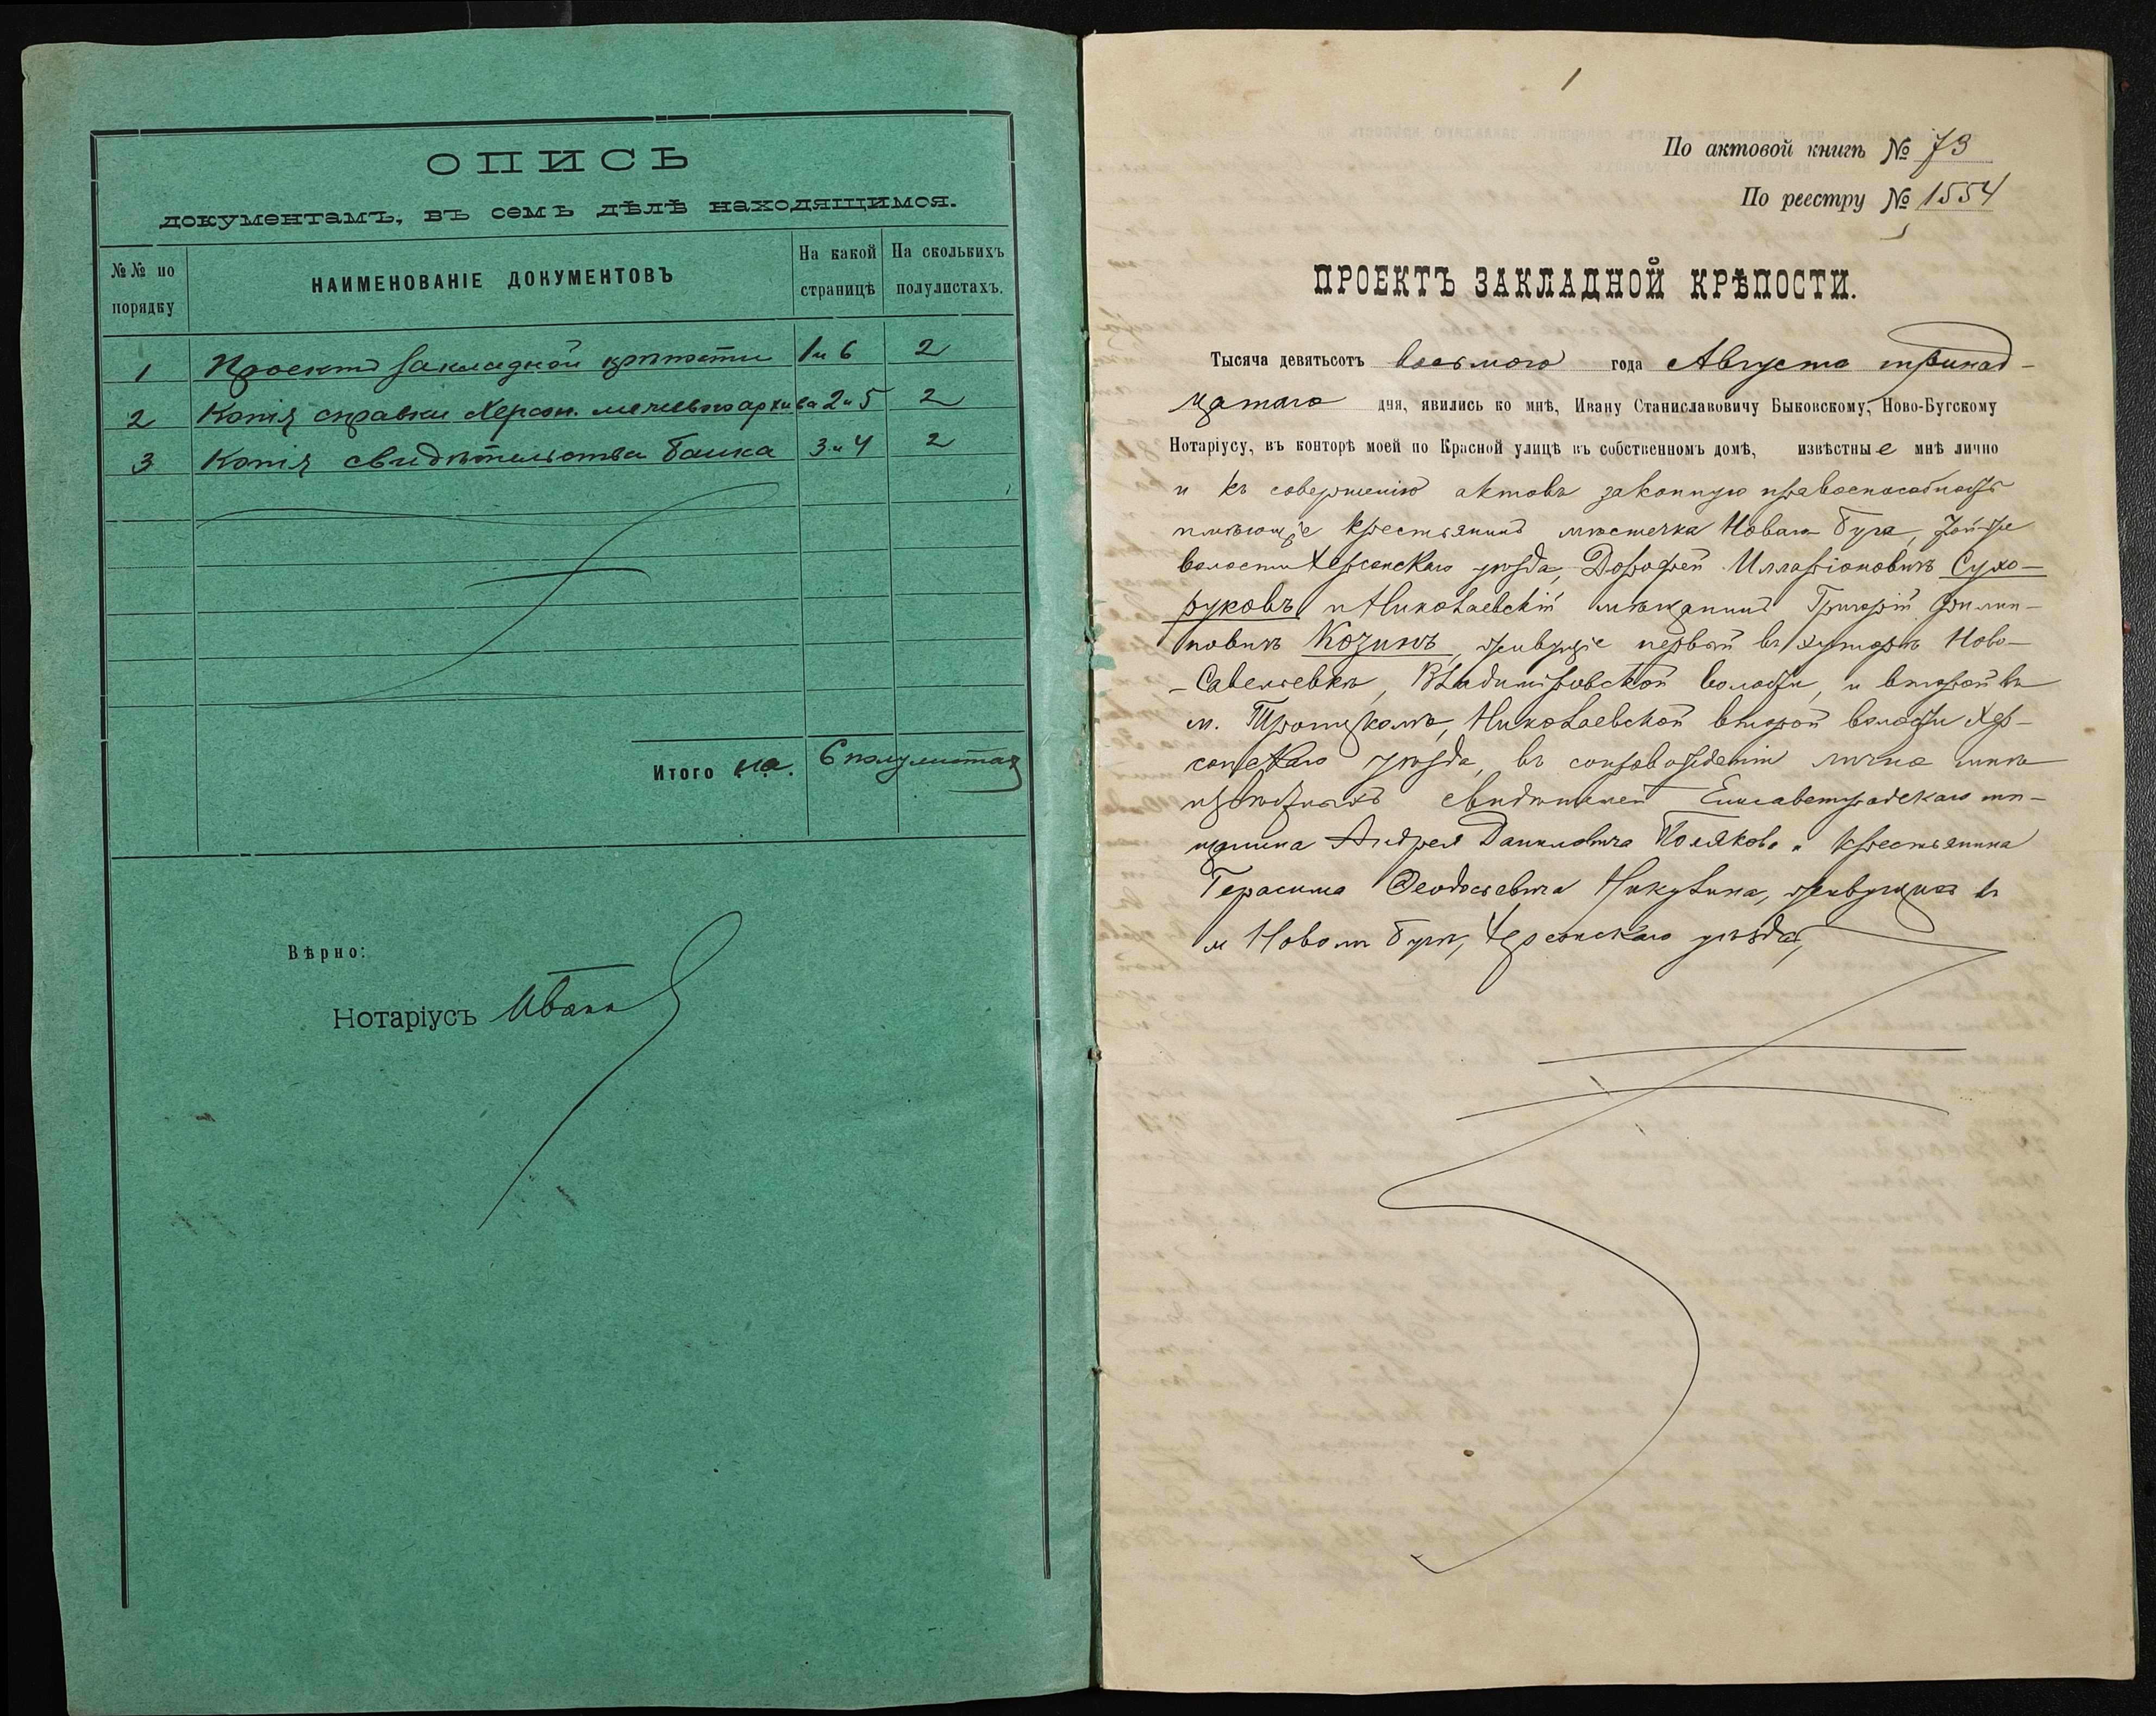 ОПИСЬ
документамъ, въ семъ дѣлѣ находящимся.
№№ по порядку
НАИМЕНОВАНІЕ ДОКУМЕНТОВЪ
На какой страницѣ
На сколькихъ полулистахъ.
1 Проектъ закладной крѣпости 1 и 6 2
2 Копія справки Херсон. межеваго архива 2 и 5 2
3 Копія свидѣтельства банка 3 и 4 2
Итого на. 6 полулистах
Вѣрно:
Нотаріусъ
1
По актовой книгѣ № 73
По реестру № 1554
ПРОЕКТЪ ЗАКЛАДНОЙ КРѢПОСТИ.
Тысяча девятьсотъ восьмого года Августа тринад-
цатаго дня, явились ко мнѣ, Ивану Станиславовичу Быковскому, Ново-Бугскому
Нотаріусу, въ конторѣ моей по Красной улицѣ въ собственномъ домѣ, извѣстные мнѣ лично
и къ совершенію актовъ законную правоспособность
имѣющіе крестьянинъ мѣстечка Новаго Буга, той же
волости Херсонскаго уѣзда, Дорофей Илларіоновичъ Сухо-
руковъ и Николаевскій мѣщанинъ Григорій Филип-
повичъ Козинъ, живущіе первый въ хуторѣ Ново-
-Савельевкѣ, Владиміровской волости, и второй въ
м. Троицкомъ, Николаевской второй волости Хер-
сонскаго уѣзда, въ сопровожденіи лично мнѣ
извѣстныхъ свидѣтелей Елисаветградскаго мѣ-
щанина Андрея Даниловича Полякова и крестьянина
Герасима Феодосьевича Никулина, живущихъ въ
м Новомъ Бугѣ, Херсонскаго уѣзда,